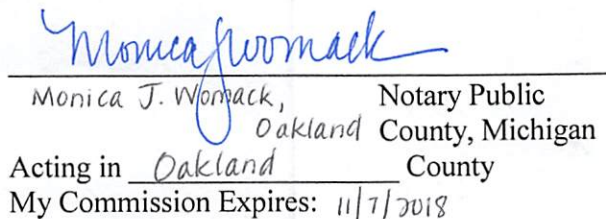 Monica J Womack
Monica J. Womack, Notary Public
Oakland County, Michigan
Acting in Oakland County
My Commission Expires: 11/7/2018